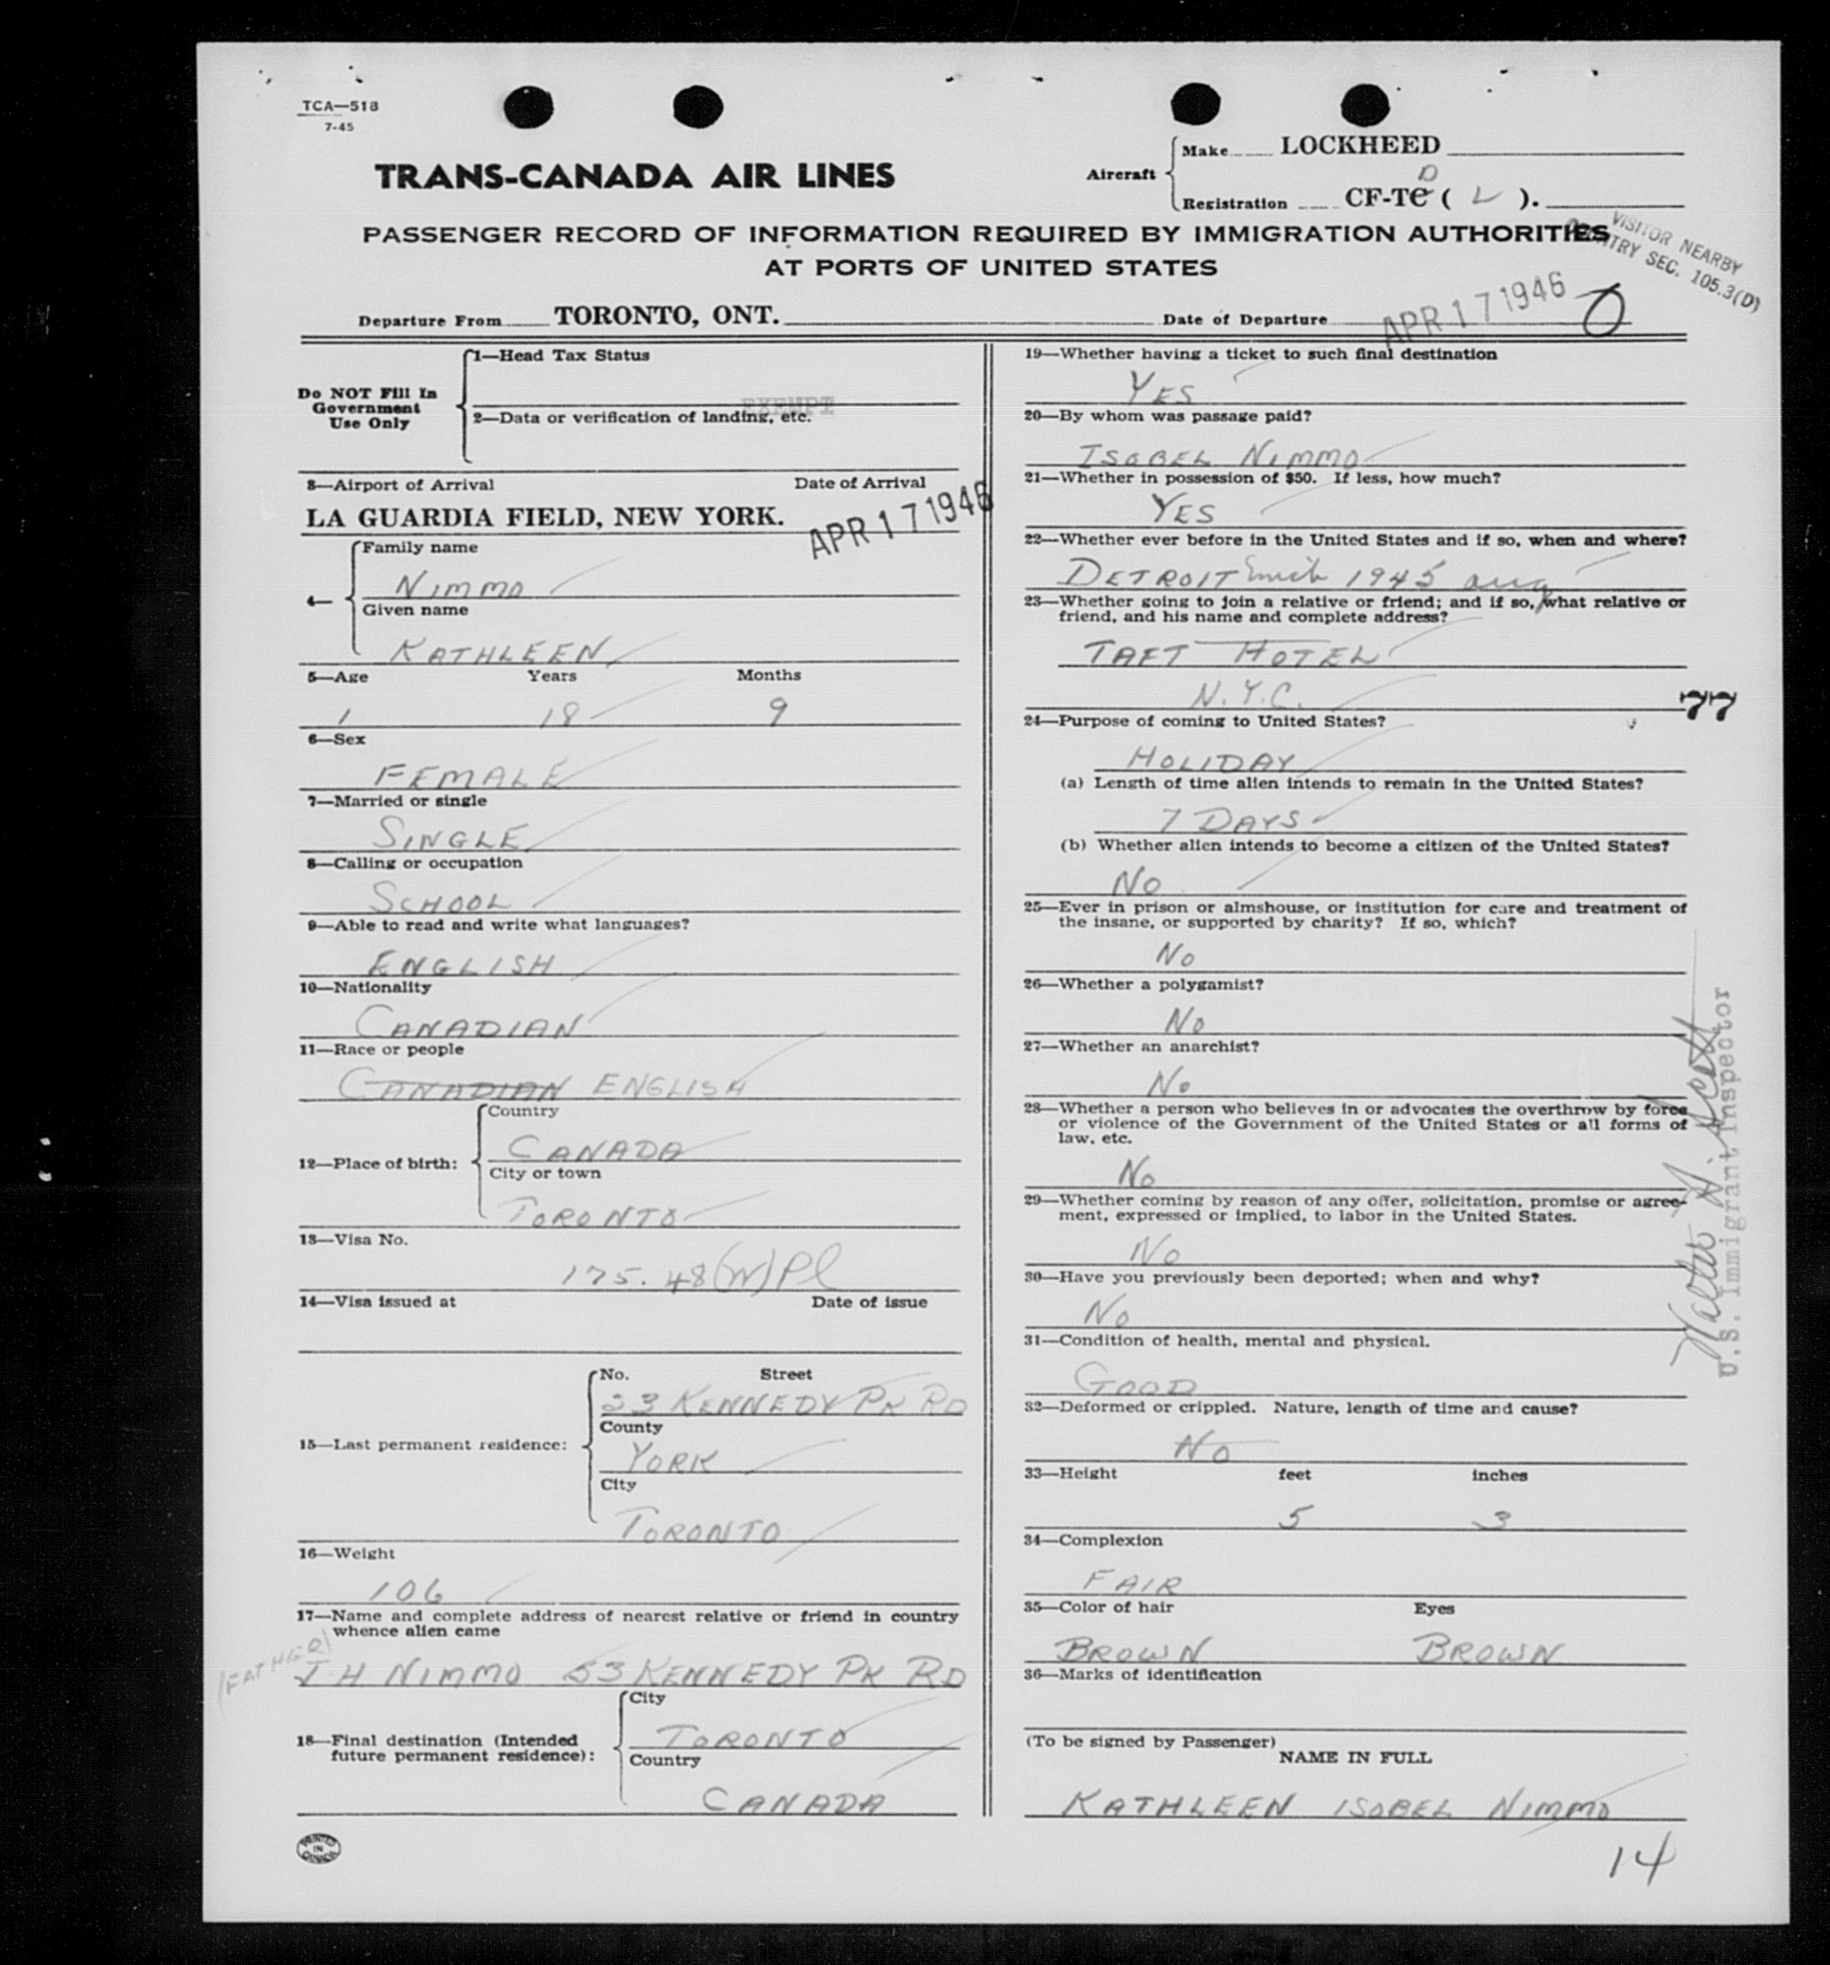 TCA—518
7-45
TRANS-CANADA AIR LINES
Aircraft
Make LOCKHEED
Registration CF-TC ( L ).
D
PASSENGER RECORD OF INFORMATION REQUIRED BY IMMIGRATION AUTHORITIES
AT PORTS OF UNITED STATES
VISITOR NEARBY
COUNTRY SEC. 105.3(D)
Departure From TORONTO, ONT. Date of Departure APR 17 1946
Do NOT Fill In
Government
Use Only
1—Head Tax Status
EXEMPT
2—Data or verification of landing, etc.
3—Airport of Arrival Date of Arrival
LA GUARDIA FIELD, NEW YORK. APR 17 1946
4—
Family name
NIMMO
Given name
KATHLEEN
5—Age Years Months
1 18 9
6—Sex
FEMALE
7—Married or single
SINGLE
8—Calling or occupation
SCHOOL
9—Able to read and write what languages?
ENGLISH
10—Nationality
CANADIAN
11—Race or people
CANADIAN ENGLISH
12—Place of birth:
Country
CANADA
City or town
TORONTO
13—Visa No.
175.48(W)Pl
14—Visa issued at Date of issue
15—Last permanent residence:
No. Street
53 KENNEDY PK RD
County
YORK
City
TORONTO
16—Weight
106
17—Name and complete address of nearest relative or friend in country
whence alien came
(FATHER)
J H NIMMO 53 KENNEDY PK RD
18—Final destination (Intended
future permanent residence):
City
TORONTO
Country
CANADA
PRINTED
IN
CANADA
19—Whether having a ticket to such final destination
YES
20—By whom was passage paid?
ISOBEL NIMMO
21—Whether in possession of $50. If less, how much?
YES
22—Whether ever before in the United States and if so, when and where?
DETROIT Mich 1945 aug
23—Whether going to join a relative or friend; and if so, what relative or
friend, and his name and complete address?
TAFT HOTEL
N.Y.C.
77
24—Purpose of coming to United States?
HOLIDAY
(a) Length of time alien intends to remain in the United States?
7 DAYS
(b) Whether alien intends to become a citizen of the United States?
NO
25—Ever in prison or almshouse, or institution for care and treatment of
the insane, or supported by charity? If so, which?
NO
26—Whether a polygamist?
NO
27—Whether an anarchist?
NO
28—Whether a person who believes in or advocates the overthrow by force
or violence of the Government of the United States or all forms of
law, etc.
NO
29—Whether coming by reason of any offer, solicitation, promise or agree-
ment, expressed or implied, to labor in the United States.
NO
30—Have you previously been deported; when and why?
NO
31—Condition of health, mental and physical.
GOOD
32—Deformed or crippled. Nature, length of time and cause?
NO
33—Height feet inches
5 3
34—Complexion
FAIR
35—Color of hair Eyes
BROWN BROWN
36—Marks of identification
(To be signed by Passenger)
NAME IN FULL
KATHLEEN ISOBEL NIMMO
14
Walter H. Scott
U.S. Immigrant Inspector